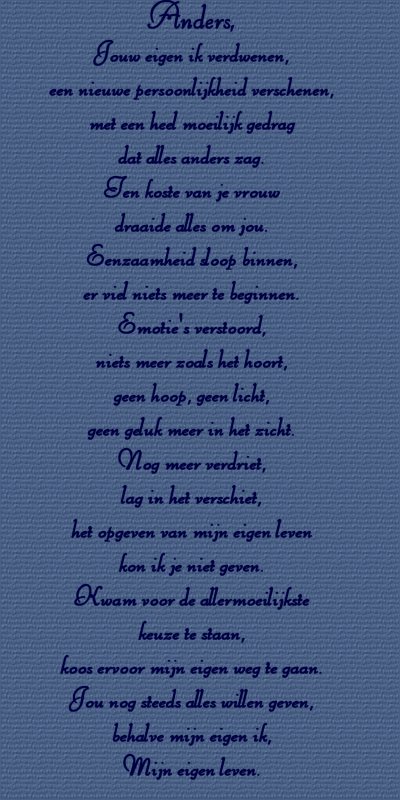 Anders,
Jouw eigen ik verdwenen,
een nieuwe persoonlijkheid verschenen,
met een heel moeilijk gedrag
dat alles anders zag.
Ten koste van je vrouw
draaide alles om jou.
Eenzaamheid sloop binnen,
er viel niets meer te beginnen.
Emotie's verstoord,
niets meer zoals het hoort,
geen hoop, geen licht,
geen geluk meer in het zicht.
Nog meer verdriet,
lag in het verschiet,
het opgeven van mijn eigen leven
kon ik je niet geven.
Kwam voor de allermoeilijkste
keuze te staan,
koos ervoor mijn eigen weg te gaan.
Jou nog steeds alles willen geven,
behalve mijn eigen ik,
Mijn eigen leven.